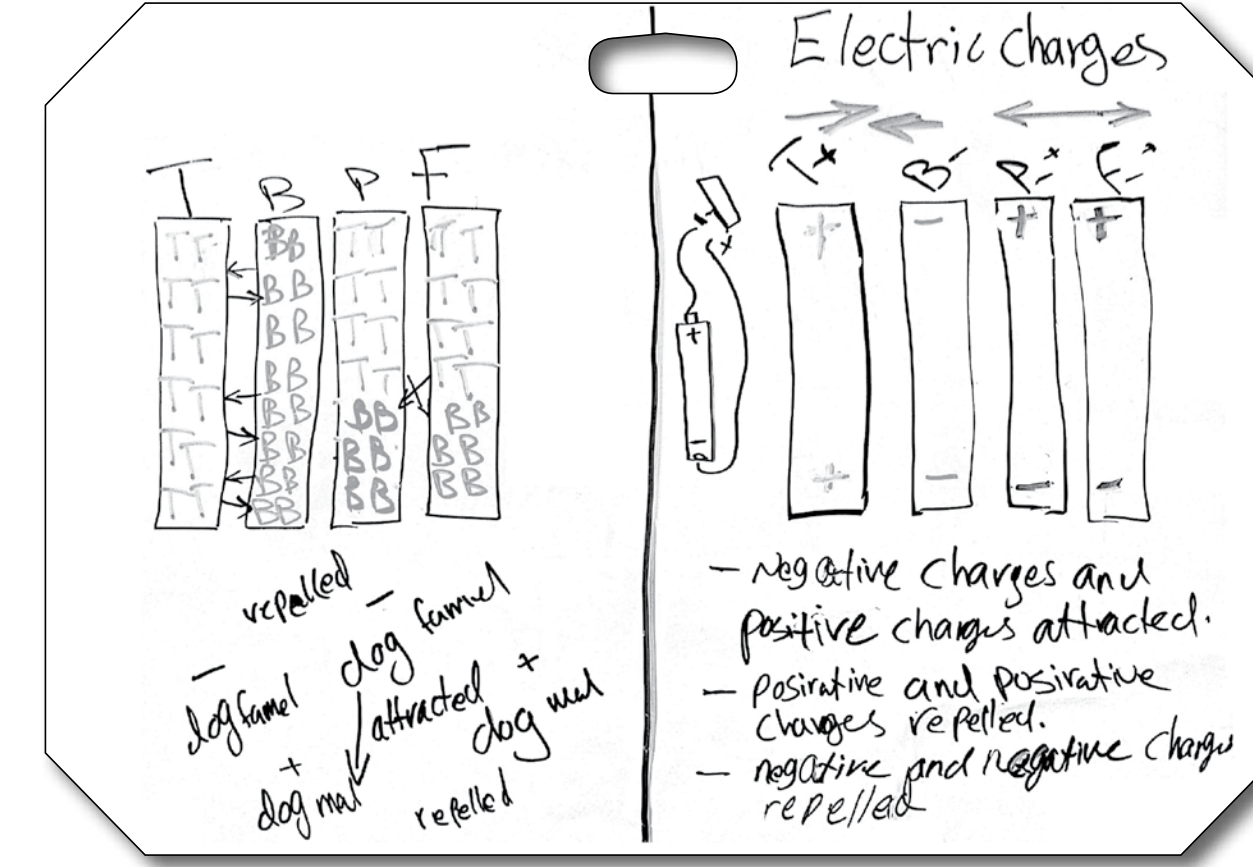 T B P F
TT BB TT TT
TT BB TT TT
TT BB TT TT
TT BB TT TT
TT BB BB BB
TT BB BB BB
BB BB BB
BB
repelled
- dog famel
- dog famel
attracted
+ dog mal
+ dog mal
repelled
Electric charges
T+ B- P-+ F-+
+ - + +
- +
+
-
+ - - -
- Negative charges and
positive charges attracted.
- posirative and posirative
charges repelled.
- negative and negative charges
repelled